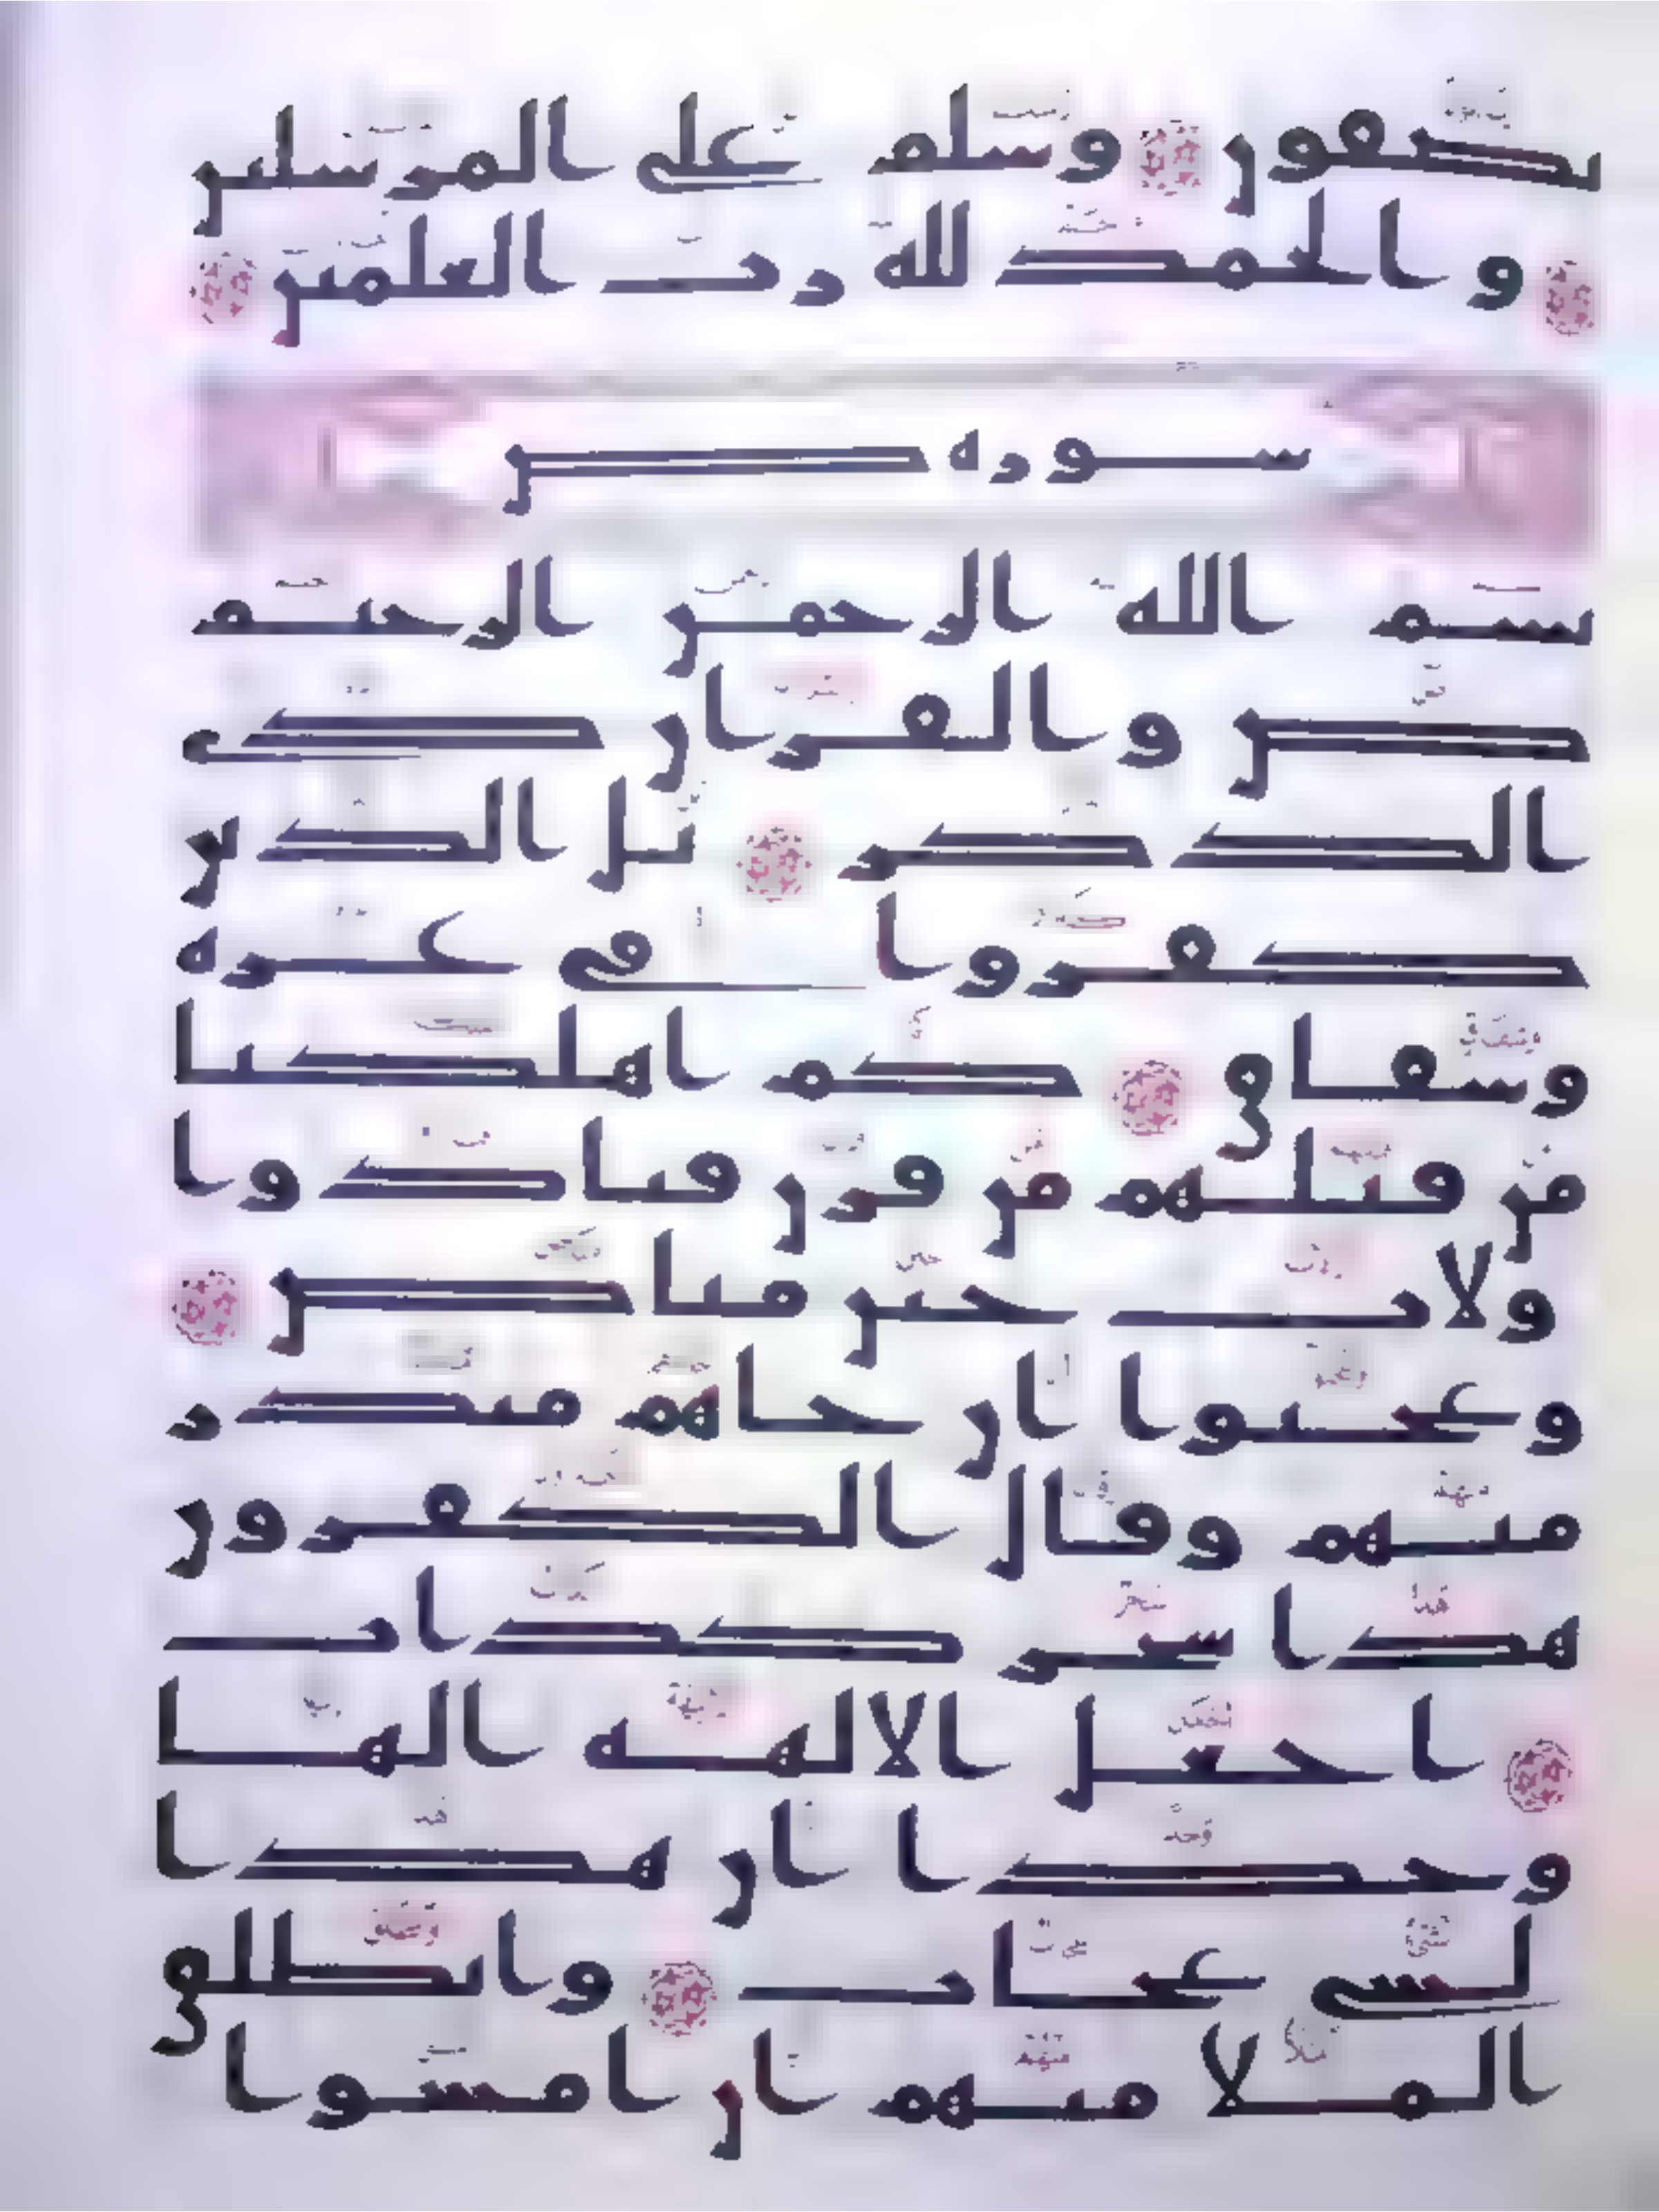 يصفون وسلم على المرسلين
والحمد لله رب العلمين
سوره ص
بسم الله الرحمن الرحيم
ص والقران ذى
الذكر بل الذين
كفروا فى عزه
وشقاق كم اهلكنا
من قبلهم من قرن فنادوا
ولات حين مناص
وعجبوا ان جاهم منذر
منهم وقال الكفرون
هذا سحر كذاب
اجعل الالهه الها
وحدا ان هذا
لشى عجاب وانطلق
الملا منهم ان امشوا